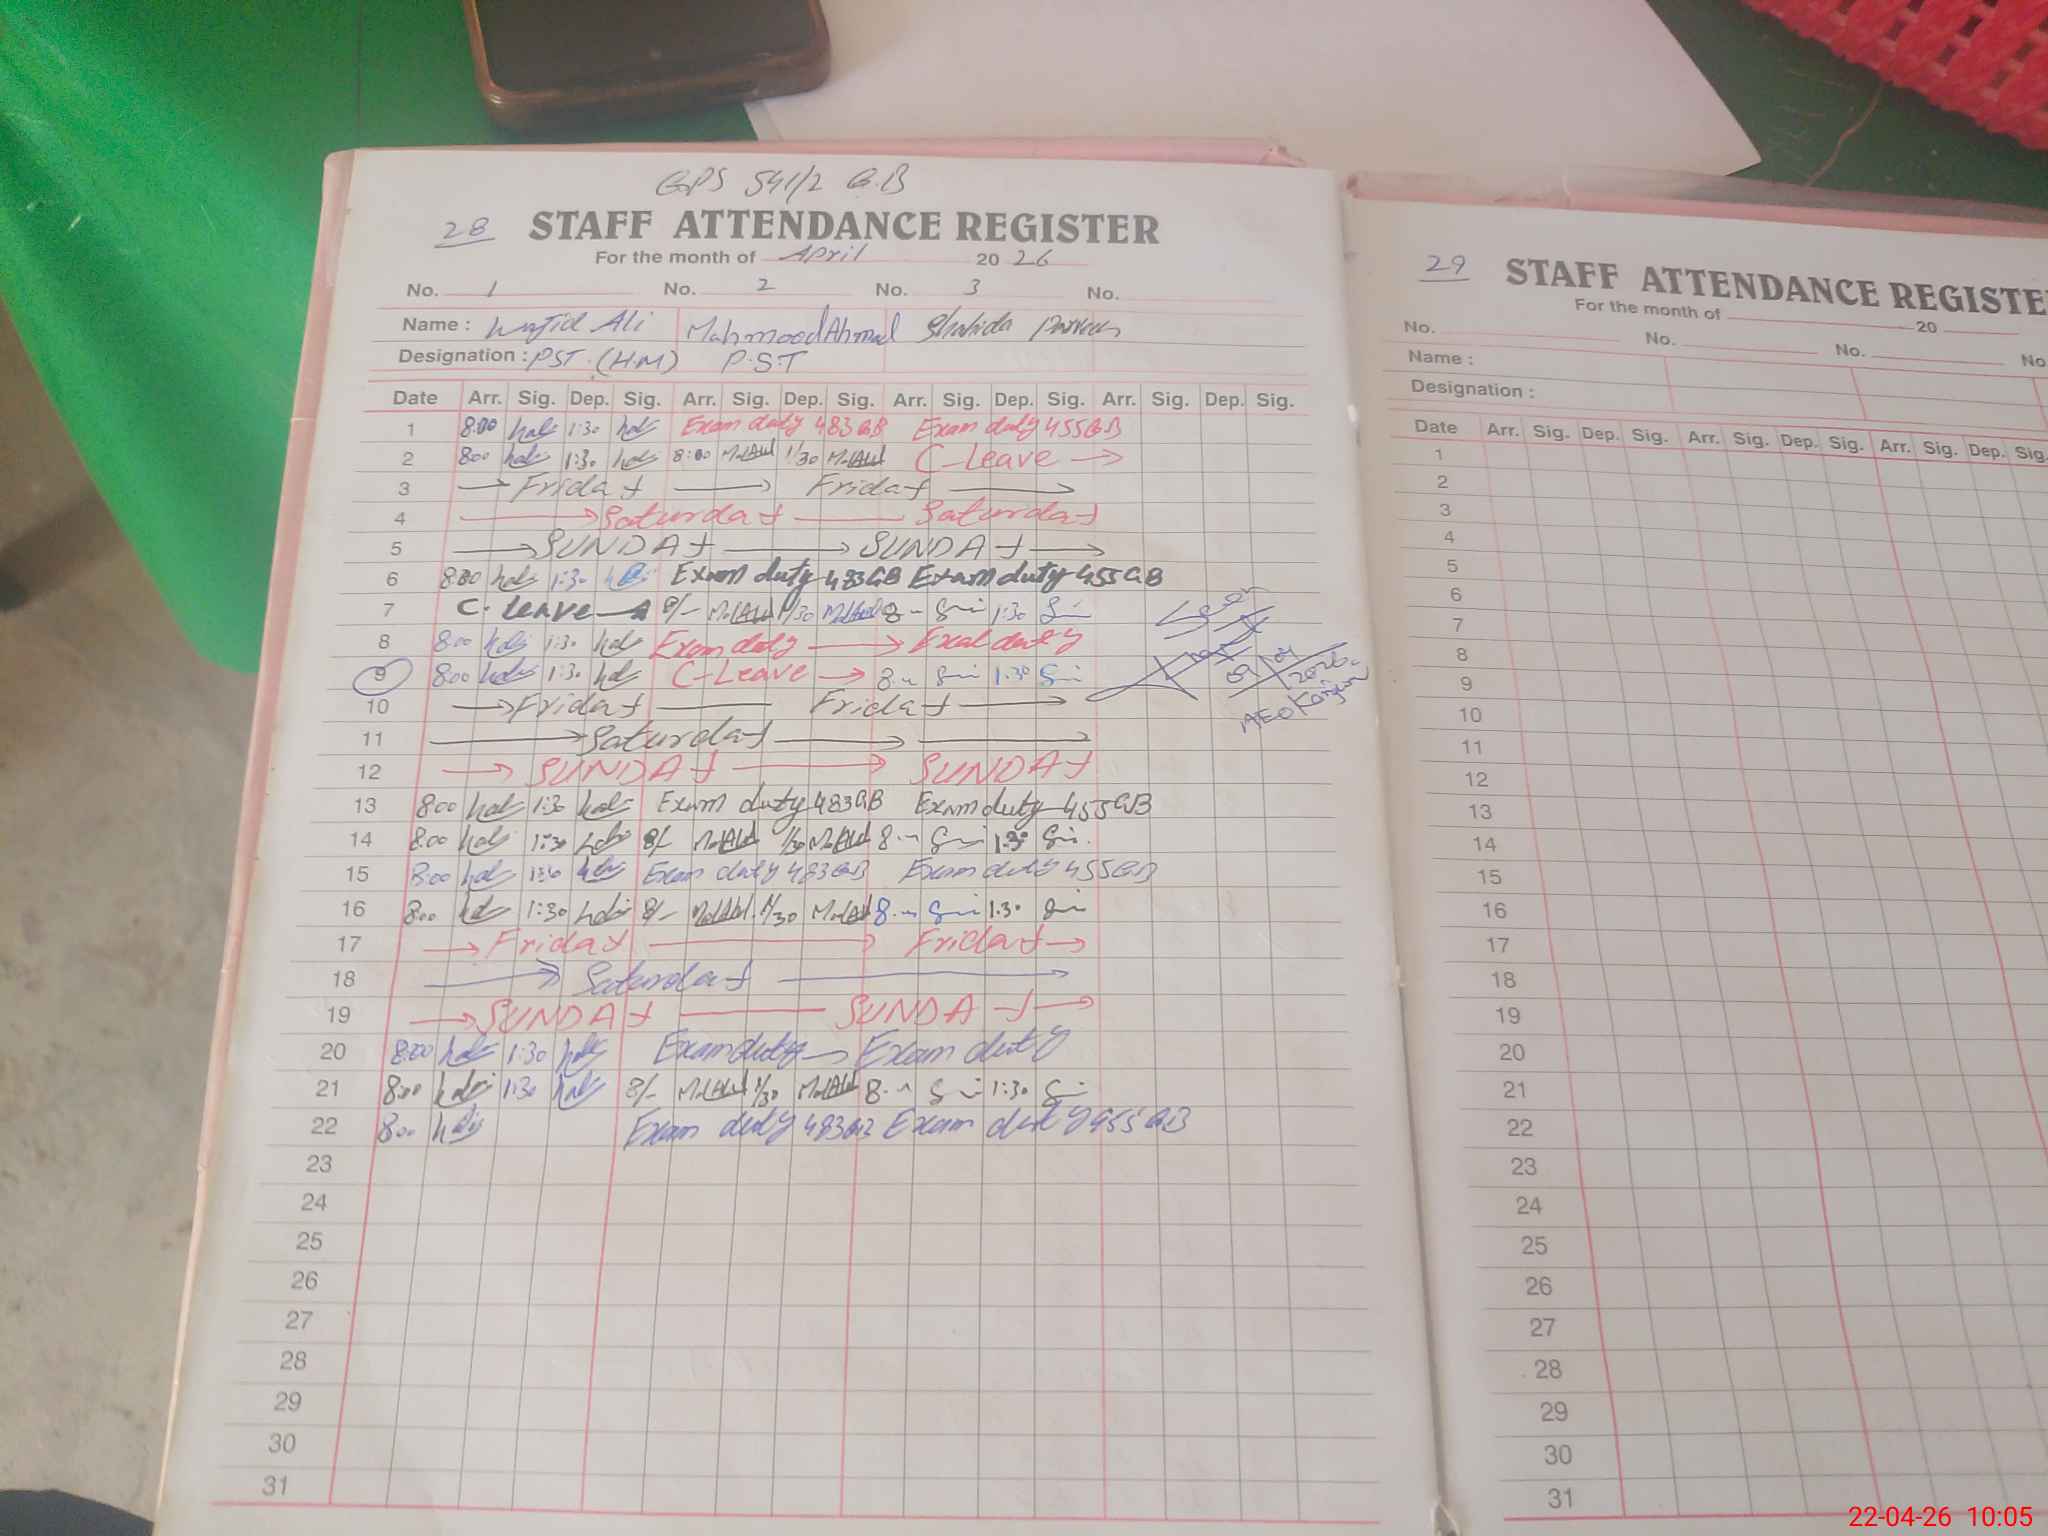 GPS 541/2 G.B
28 STAFF ATTENDANCE REGISTER
For the month of April 2026
No. 1 No. 2 No. 3 No.
Name : Wajid Ali Mahmood Ahmad Shahida Parveen
Designation : PST (H.M) P.S.T
Date Arr. Sig. Dep. Sig. Arr. Sig. Dep. Sig. Arr. Sig. Dep. Sig. Arr. Sig. Dep. Sig.
1 8:00 1:30 Exam duty 483 GB Exam duty 455 GB
2 800 1:30 8:00 1/30 C-Leave
3 Friday Friday
4 Saturday Saturday
5 SUNDAY SUNDAY
6 8:00 1:30 Exam duty 483 GB Exam duty 455 GB
7 C. leave 8/- 1/30 8 1:30
8 8:00 1:30 Exam duty duty
9 8:00 1:30 C-Leave 8 1:30
10 Friday Friday
11 Saturday
12 SUNDAY SUNDAY
13 8:00 1:30 Exam duty 483 GB Exam duty 455 GB
14 8:00 1:30 8/- 1/30 8 1:30
15 8:00 1:30 Exam duty 483 GB Exam duty 455 GB
16 8:00 1:30 8/- 1/30 8 1:30
17 Friday Friday
18 Saturday
19 SUNDAY SUNDAY
20 8:00 1:30 Exam duty Exam duty
21 8:00 1:30 8/- 1/30 8 1:30
22 8:00 Exam duty 483 GB Exam duty 455 GB
23
24
25
26
27
28
29
30
31
Seen
2026
AEO
29 STAFF ATTENDANCE REGISTE
For the month of 20
No. No. No. No
Name :
Designation :
Date Arr. Sig. Dep. Sig. Arr. Sig. Dep. Sig. Arr. Sig. Dep. Sig.
1
2
3
4
5
6
7
8
9
10
11
12
13
14
15
16
17
18
19
20
21
22
23
24
25
26
27
28
29
30
31
22-04-26 10:05